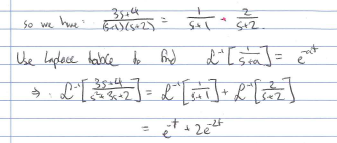 so we have: (3s+4)/((s+1)(s+2)) = 1/(s+1) + 2/(s+2).
Use Laplace table to find ℒ⁻¹[1/(s+a)] = e^(-at)
⇒ ℒ⁻¹[(3s+4)/(s²+3s+2)] = ℒ⁻¹[1/(s+1)] + ℒ⁻¹[2/(s+2)]
= e^(-t) + 2e^(-2t)